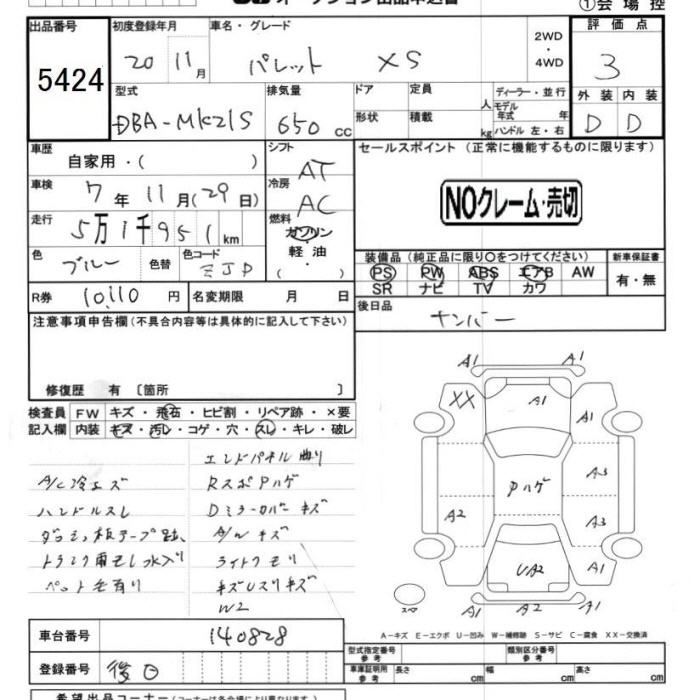 ①会場控
出品番号
5424
初度登録年月
20 11月
車名・グレード
パレット XS
2WD
・
4WD
評価点
3
型式
DBA-MK21S
排気量
650 cc
ドア
形状
定員
人
積載
kg
ディーラー・並行
モデル
年式 年
ハンドル 左・右
外装 内装
D D
車歴
自家用・( )
シフト
AT
セールスポイント (正常に機能するものに限ります)
NOクレーム・売切
車検
7年11月(29日)
冷房
AC
走行
5万1千951km
燃料
ガソリン
軽油・
( )
色
ブルー
色替
色コード
ZJP
装備品 (純正品に限り○をつけてください)
PS PW ABS エアB AW
SR ナビ TV カワ
新車保証書
有・無
R券
10,110円
名変期限 月 日
後日品
ナンバー
注意事項申告欄(不具合内容等は具体的に記入して下さい)
修復歴 有 〔箇所 〕
検査員
記入欄
FW キズ・飛石・ヒビ割・リペア跡・×要
内装 キズ・汚レ・コゲ・穴・スレ・キレ・破レ
A/C冷エズ
ハンドルスレ
トランク雨モレ水入り
ペット毛有り
エンドパネル曲り
RスポPハゲ
Dミラーカバーキズ
A/Wキズ
ライトクモリ
W2
A1
A1
XX
A1
A1
Pハゲ
A3
A2
A3
UA2
A1
A1
A1
スペ
A-キズ E-エクボ U-凹み W-補修跡 S-サビ C-腐食 XX-交換済
車台番号
140828
登録番号
後日
型式指定番号
参考
類別区分番号
参考
車庫証明用
参考
長さ cm
幅 cm
高さ cm
希望出品コーナー